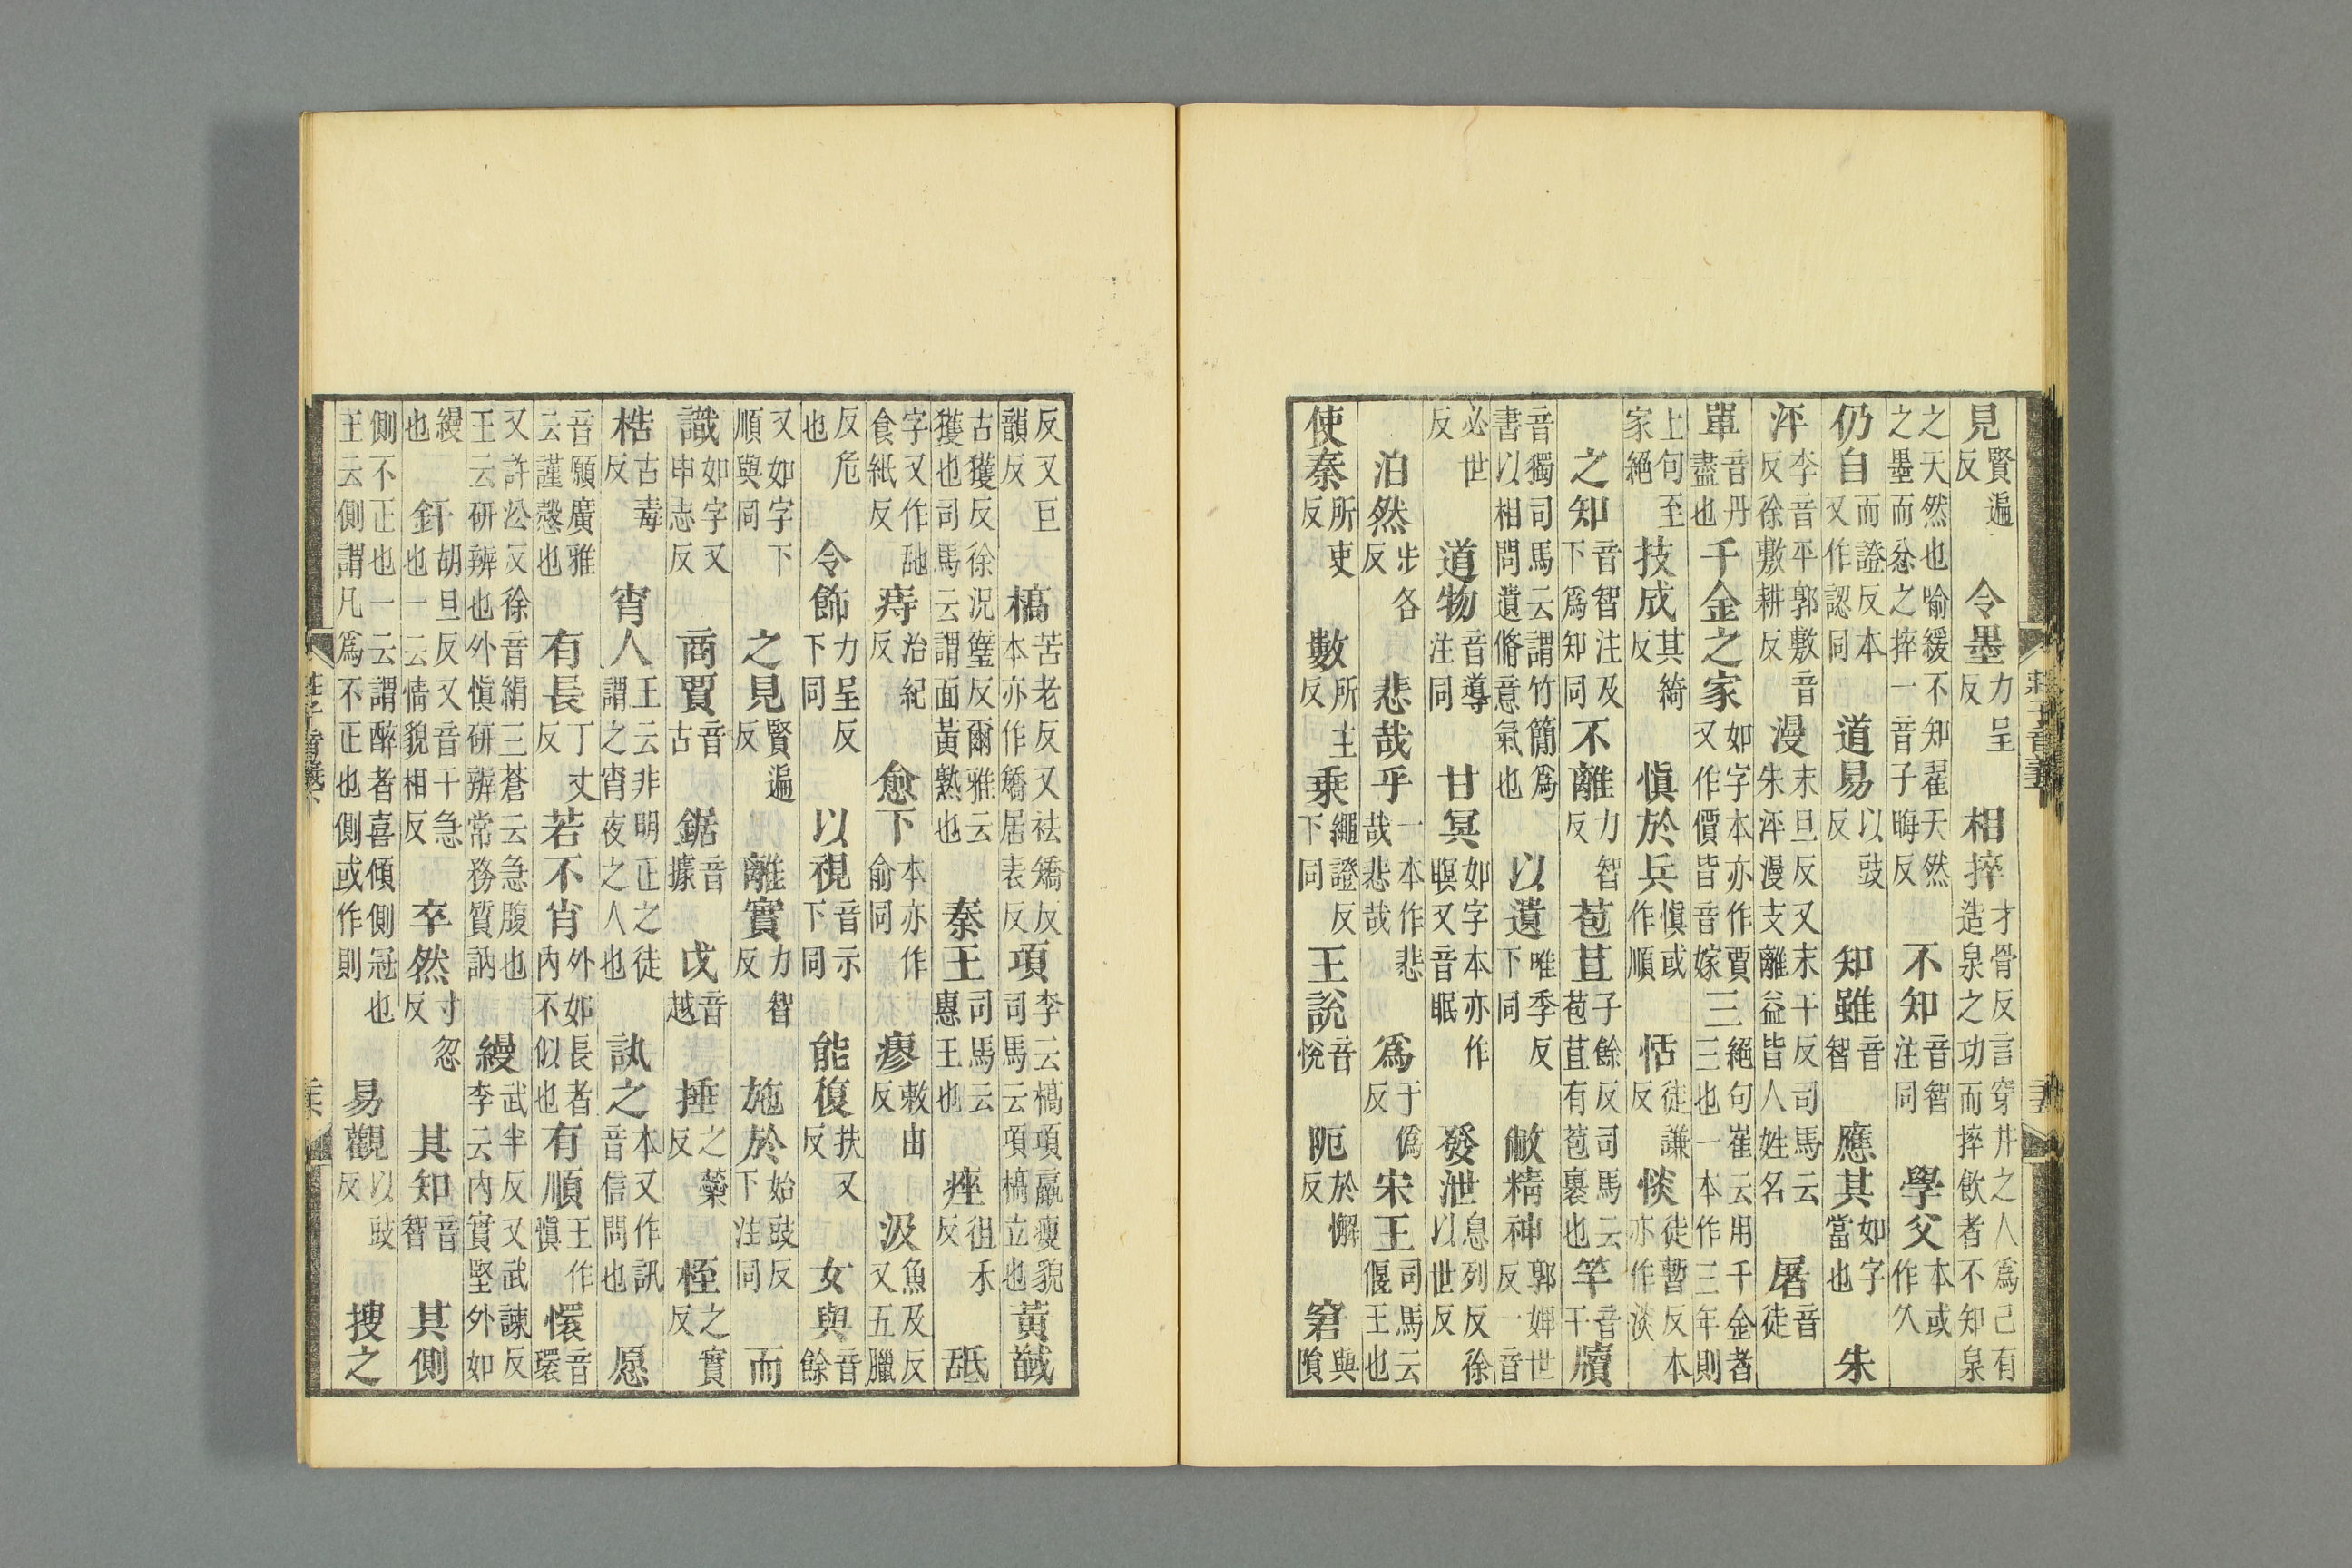 莊子音義
見賢遍反令墨力呈反相捽才骨反言穿井之人爲己有造泉之功而捽飲者不知泉
之天然也喻緩不知翟天然之墨而忿之捽一音子晦反不知音智注同學父本或作久
仍自而證反本又作認同道易以豉反知雖音智應其如字當也朱
泙李音平郭敷音反徐敷耕反漫末旦反又末干反司馬云朱泙漫支離益皆人姓名屠音徒
單音丹盡也千金之家如字本亦作賈又作價皆音嫁三絕句崔云用千金者三也一本作三年則
上句至家絕技成其綺反愼於兵愼或作順恬徒謙反惔徒暫反本亦作淡
之知音智注及下爲知同不離力智反苞苴子餘反司馬云苞苴有苞裹也竿音干牘
音獨司馬云謂竹簡爲書以相問遺脩意氣也以遺唯季反下同敝精神郭婢世反一音
必世反道物音導注同甘冥如字本亦作瞑又音眠發泄息列反徐以世反
泊然步各反悲哉乎一本作悲哉悲哉爲于僞反宋王司馬云偃王也
使秦所吏反數所主反乘繩證反下同王說音悅阨於懈反窘與隕
反又巨韻反槁苦老反又祛矯反本亦作矯居表反項李云槁項羸瘦貌司馬云項槁立也黃馘
古獲反徐況璧反爾雅云獲也司馬云謂面黃熟也秦王司馬云惠王也痤徂禾反舐
字又作䑛食紙反痔治紀反愈下本亦作俞同瘳敕由反汲魚及反又五臘
反危也令飾力呈反下同以視音示下同能復扶又反女與音餘
又如字下順與同之見賢遍反離實力智反施於始豉反下注同而
識如字又申志反商賈音古鋸音據戉音越捶之蘂反桎之實反
梏古毒反宵人王云非明正之徒謂之宵夜之人也訙之本又作訊音信問也愿
音願廣雅云謹慤也有長丁丈反若不肖外如長者內不似也有順王作愼懁音環
又許沿反徐音絹三蒼云急腹也王云研辨也外愼研辨常務質訥縵武半反又武諫反李云內實堅外如
縵也釬胡旦反又音干急也一云情貌相反卒然寸忽反其知音智其側
側不正也一云謂醉者喜傾側冠也王云側謂凡爲不正也側或作則易觀以豉反搜之